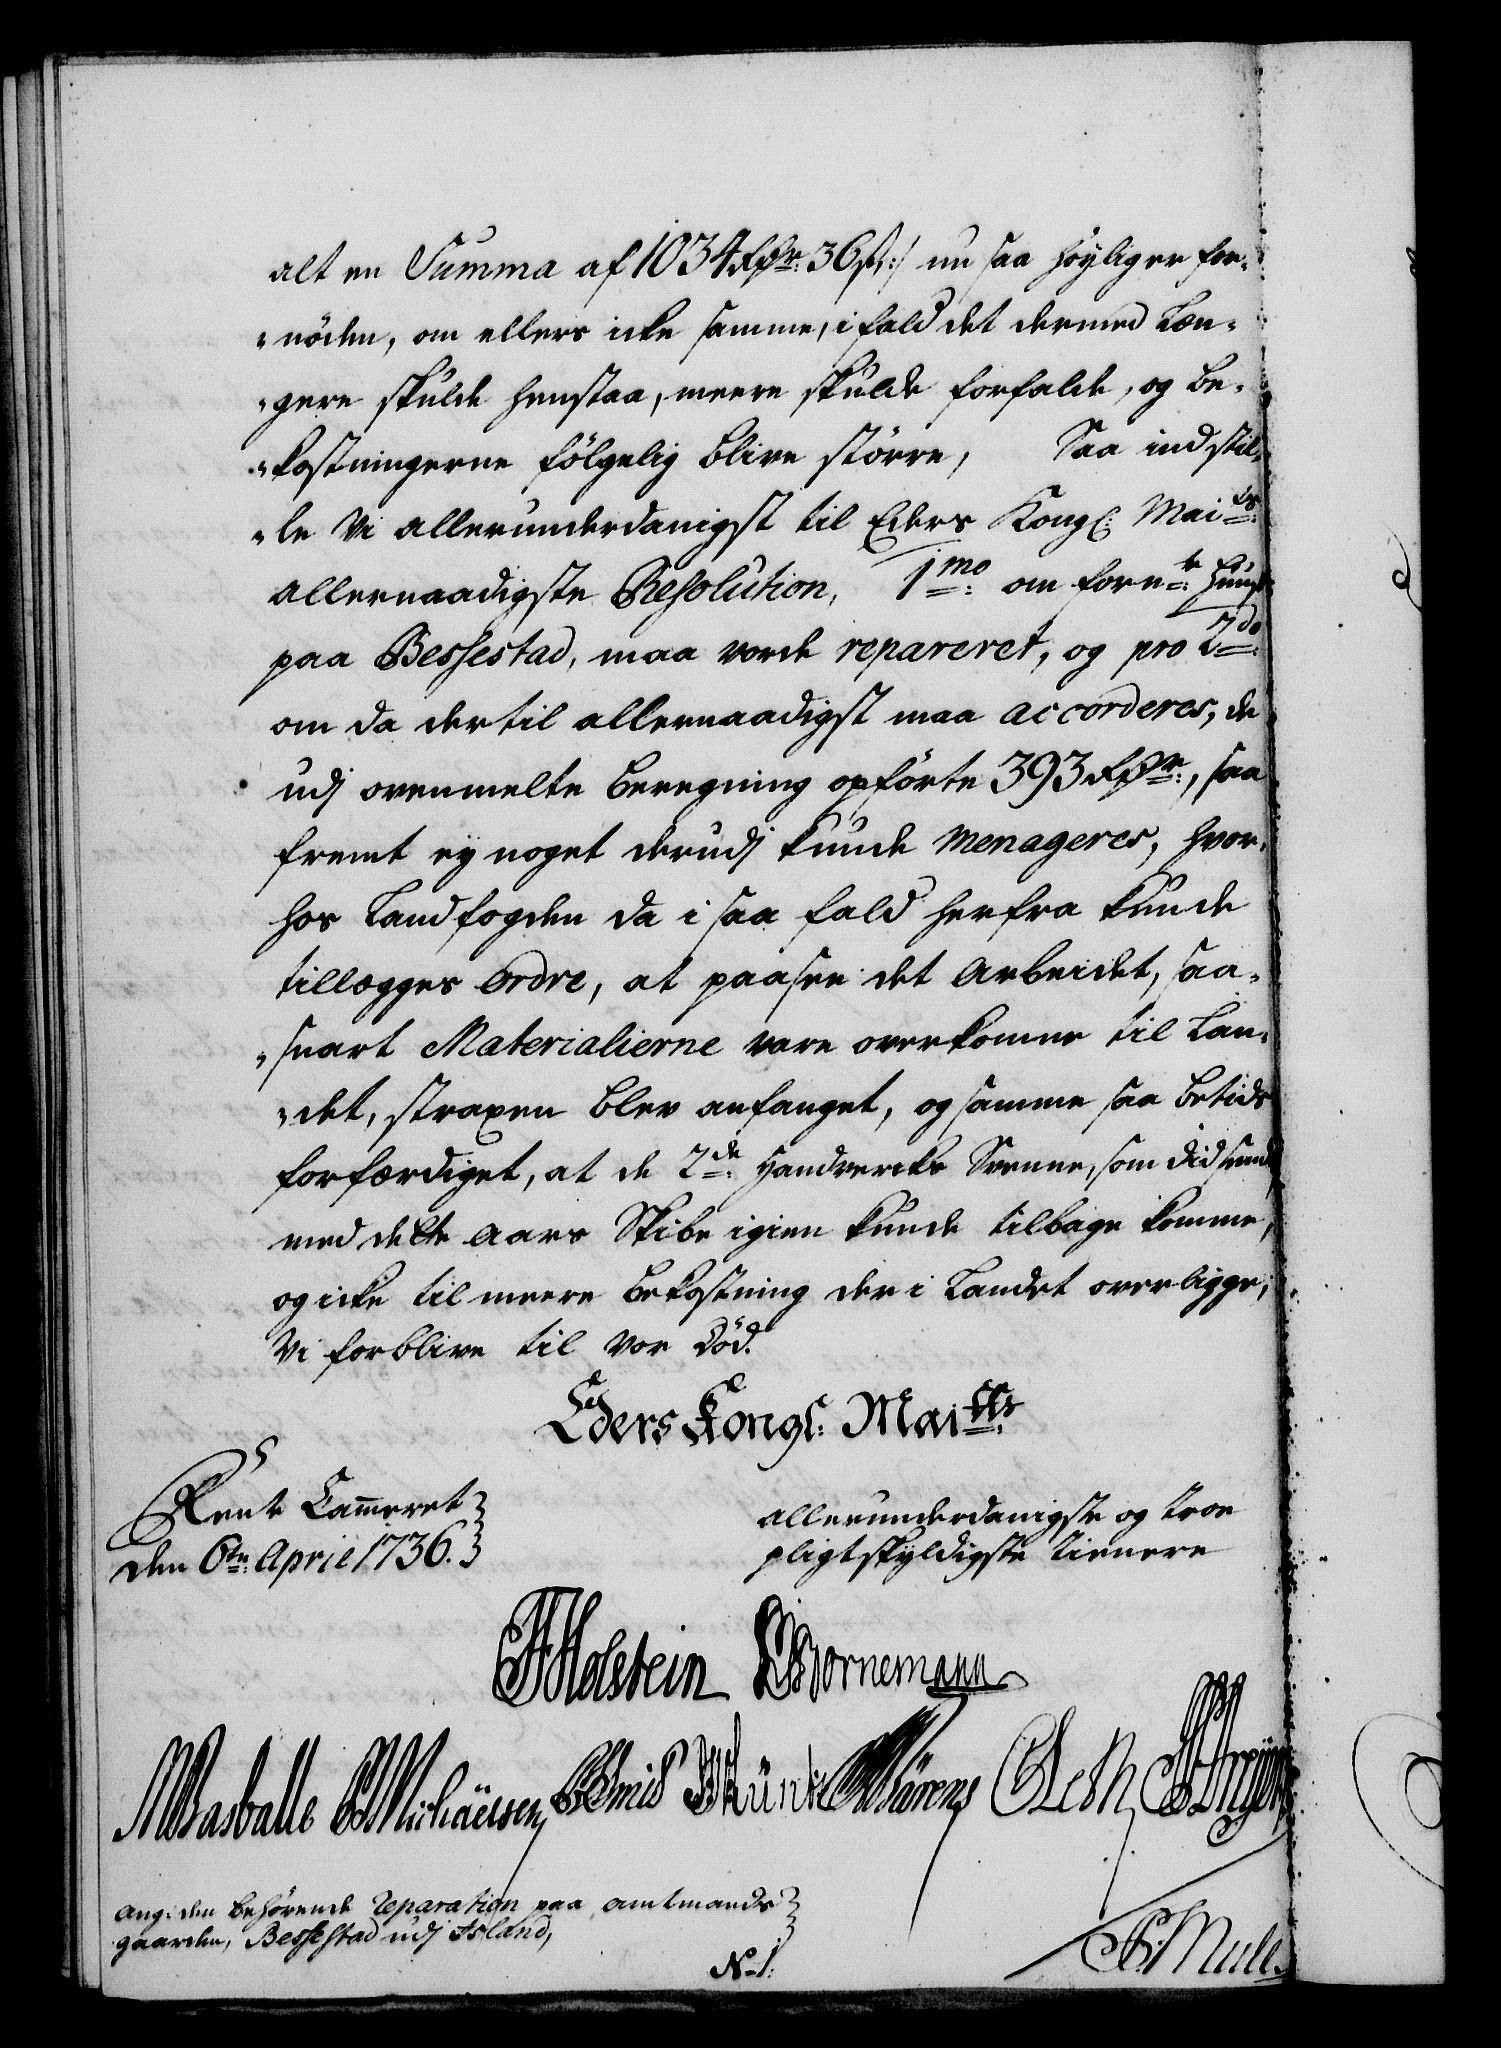 alt en Summa af 1034 Rdr: 36 s:/ nu saa höyligen for-
-nöden, om ellers icke samme, ifald det dermed læn-
-gere skulde henstaa, meere skulde forfalde, og be-
-kostningerne fölgelig blive större, Saa indstil-
-le Vi allerunderdanigst til Eders Kongl: Maits:
allernaadigste Resolution, 1mo: om fornte: Huuse
paa Bessestad, maa vorde repareret, og pro 2do:
om da dertil allernaadigst maa accorderes, de
udj ovenmelte beregning opförte 393 Rdr:, saa
fremt ey noget derudj kunde menageres, hvor-
hos Landfogden da i saa fald herfra kunde
tillægges ordre, at paasee det Arbeidet, saa-
-snart Materialierne vare overkomne til Lan-
-det, straxen blev anfanget, og samme saa betids
forfærdiget, at de 2de: Handvercks Svenne, som did sendes
med dette Aars Skibe igien kunde tilbage komme,
og icke til meere bekostning der i Landet overligge;
Vi forblive til vor död.
Eders Kongl: Maitts:
Rente Cammeret
den 6te: April 1736.
allerunderdanigste og troe
pligtskyldigste tienere
Holstein Bornemann
Wasballe Michäelsen Munk Sörens
Mule
Ang: den behövende reparation paa amtmands
gaarden, Bessestad udj Island,
N-1: